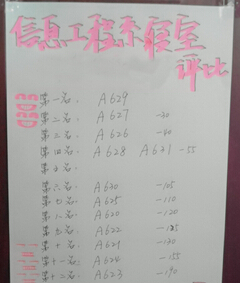 信息工程系寝室
评比
第一名: A629
第二名: A627 -30
第三名: A626 -40
第四名: A628 A631 -55
第五名:
第六名: A630 -105
第七名: A625 -110
第八名: A620 -120
第九名: A622 -125
第十名: A621 -130
第十一名: A624 -155
第十二名: A623 -190